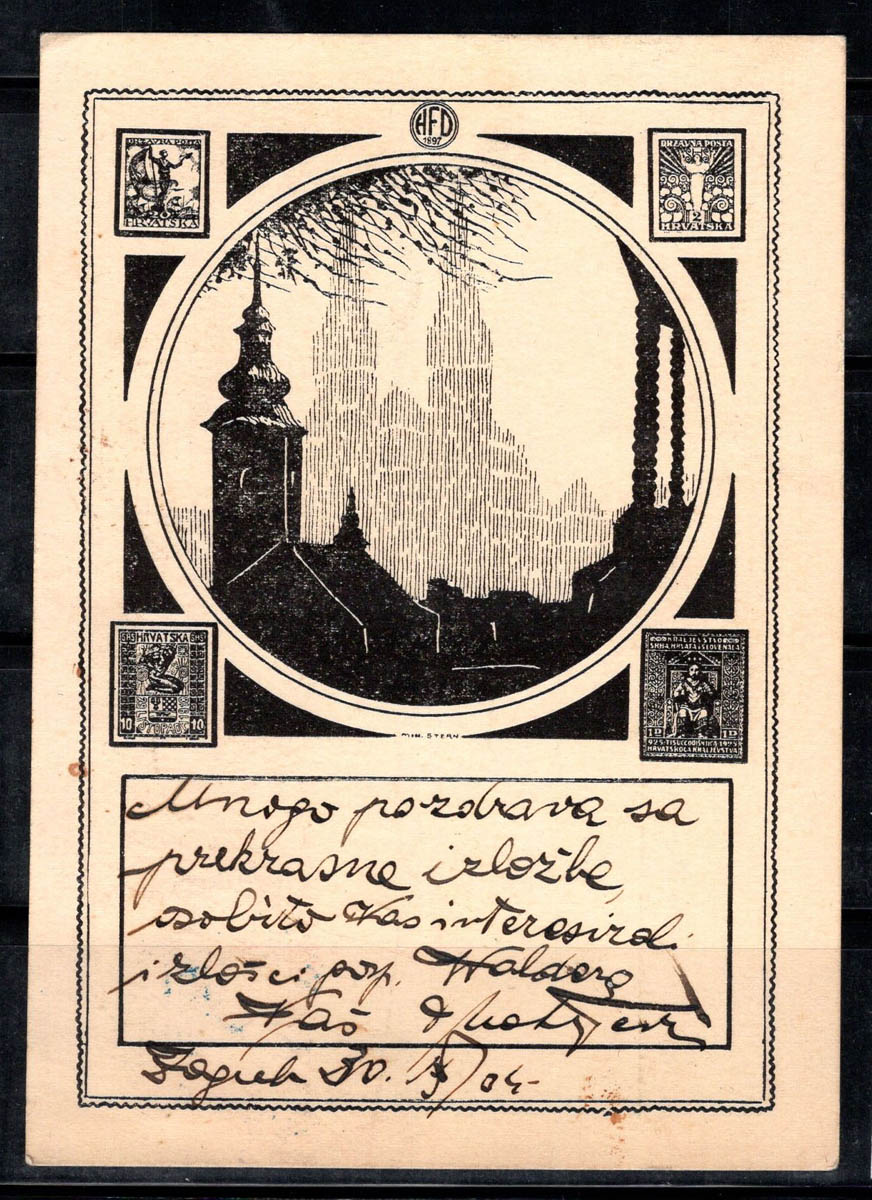 HFD
1897
DRŽAVNA POSTA
HRVATSKA
DRZAVNA POSTA
2
HRVATSKA
SHS HRVATSKA SHS
10 10
KRALJEVSTVO
SRBA, HRVATA i SLOVENACA
1D 1D
925 TISUĆGODIŠNJICA 1925
HRVATSKOGA KRALJEVSTVA
MIN. STERN
Mnogo pozdrava sa
prekrasne izložbe,
osobito Vas interesira
izlošci gosp.
Vaš
Zagreb 30.